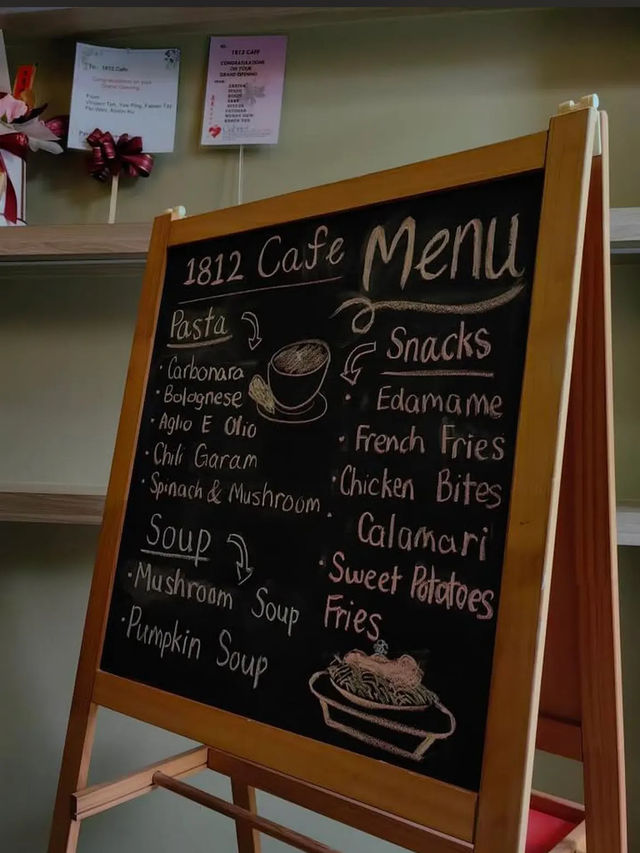 To: 1812 Cafe
Congratulations on your
Grand Opening
From:
1812 CAFE
CONGRATULATIONS
ON YOUR
GRAND OPENING
1812 Cafe Menu
Pasta
· Carbonara
· Bolognese
· Aglio E Olio
· Chili Garam
· Spinach & Mushroom
Soup
· Mushroom Soup
· Pumpkin Soup
Snacks
· Edamame
· French Fries
· Chicken Bites
· Calamari
· Sweet Potatoes
Fries